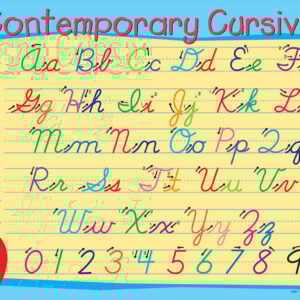 Contemporary Cursiv
Aa Bb Cc Dd Ee F
Gg Hh Ii Jj Kk L
Mm Nn Oo Pp Qq
Rr Ss Tt Uu Vv
Ww Xx Yy Zz
0 1 2 3 4 5 6 7 8 9